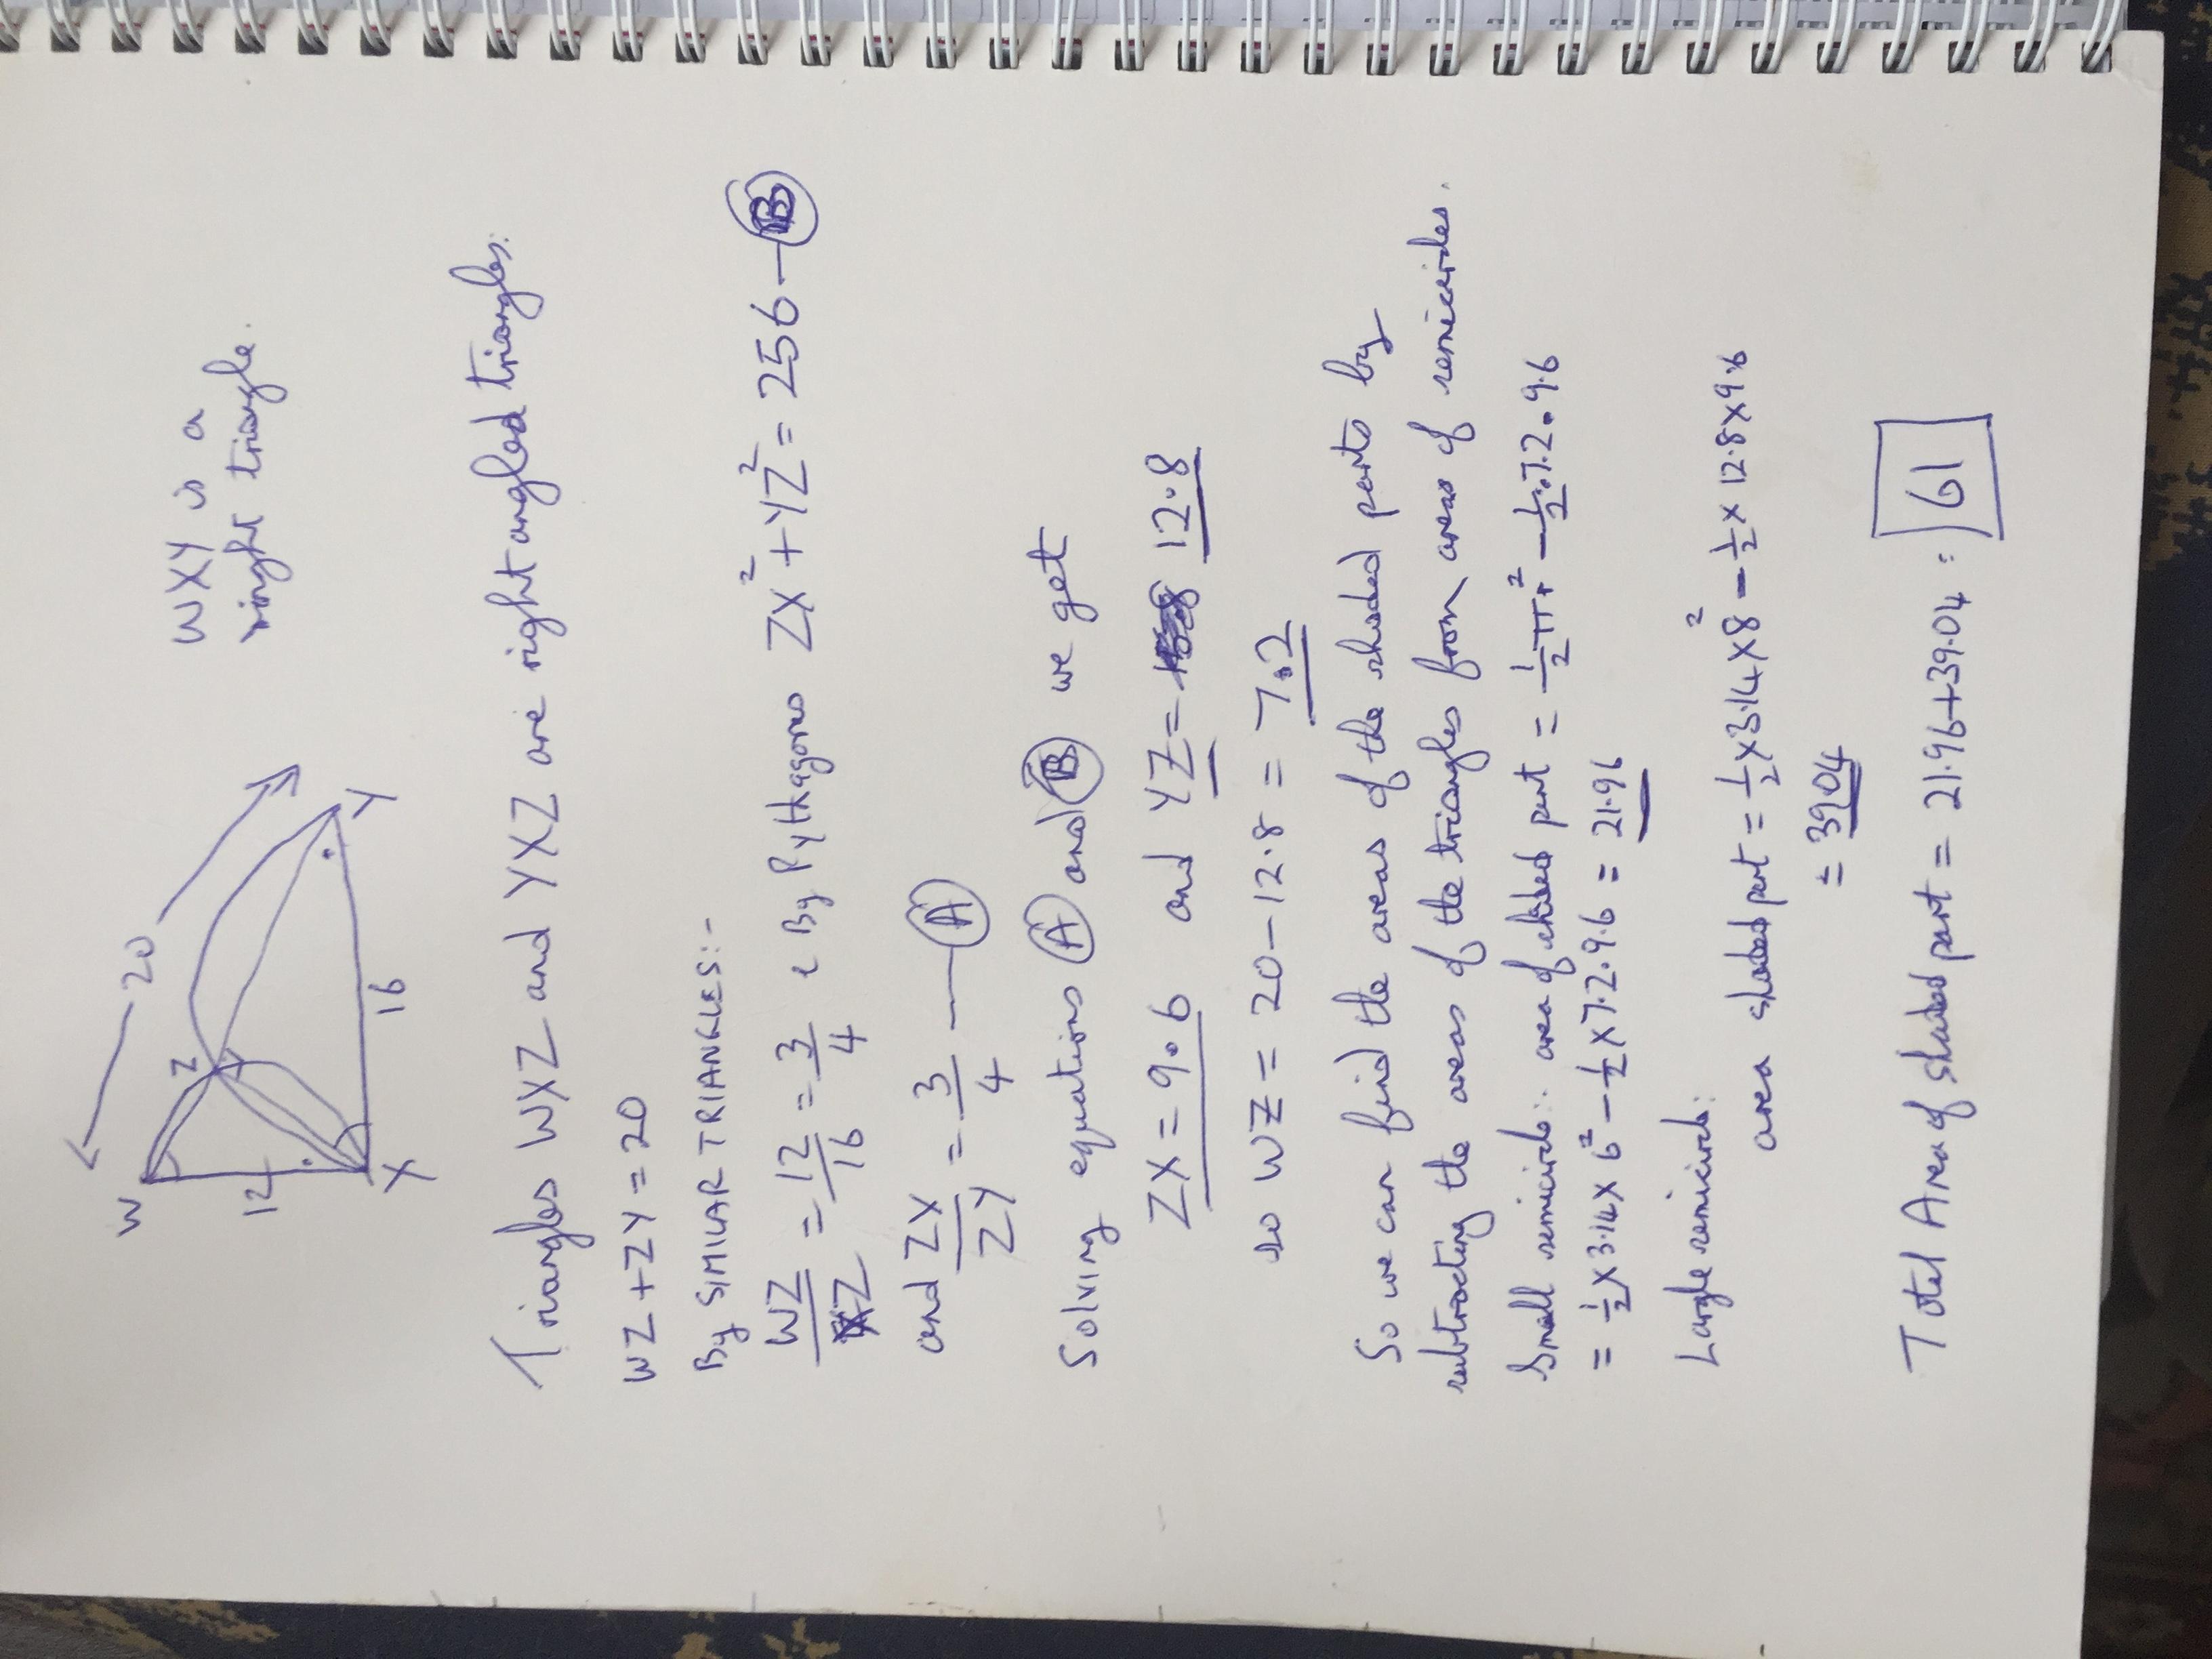 20
W
Z
12
16
X
Y
WXY is a
right triangle.
Triangles WXZ and YXZ are right angled triangles.
WZ + ZY = 20
By SIMILAR TRIANGLES:-
WZ/XZ = 12/16 = 3/4 & By Pythagoras ZX² + YZ² = 256 — B
and ZX/ZY = 3/4 — A
Solving equations A and B we get
ZX = 9.6 and YZ = 12.8
so WZ = 20 - 12.8 = 7.2
So we can find the areas of the shaded parts by
subtracting the areas of the triangles from areas of semicircles.
Small semicircle: area of shaded part = 1/2 πr² - 1/2 . 7.2 . 9.6
= 1/2 x 3.14 x 6² - 1/2 x 7.2 . 9.6 = 21.96
Largle semicircle:
area shaded part = 1/2 x 3.14 x 8² - 1/2 x 12.8 x 9.6
= 39.04
Total Area of shaded part = 21.96 + 39.04 = 61